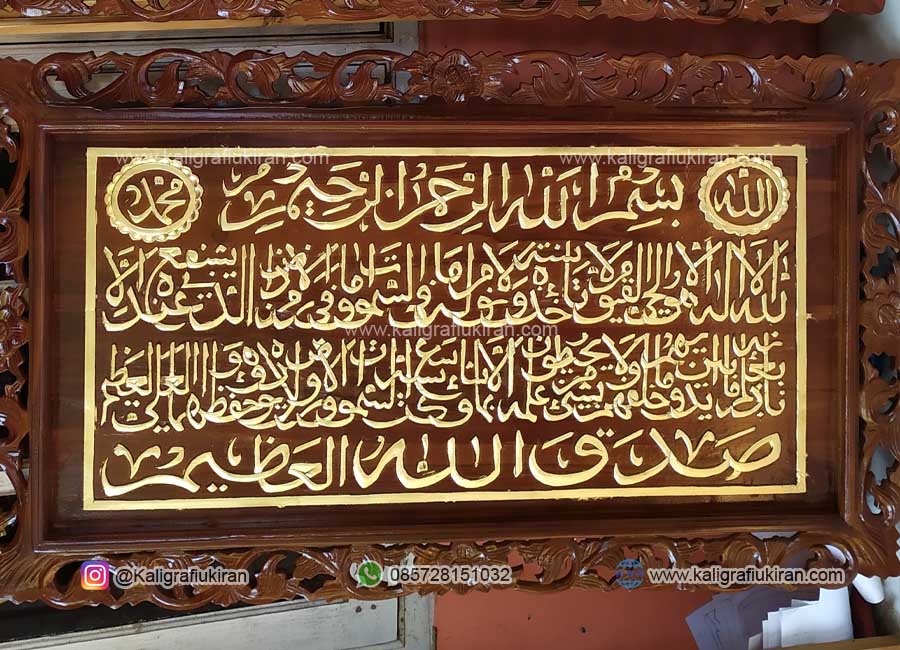 www.kaligrafiukiran.com www.kaligrafiukiran.com
الله بسم الله الرحمن الرحيم محمد
الله لا اله الا هو الحي القيوم لا تأخذه سنة ولا نوم له ما في السموت وما في الارض من ذا الذي يشفع عنده الا
www.kaligrafiukiran.com
باذنه يعلم ما بين ايديهم وما خلفهم ولا يحيطون بشيء من علمه الا بما شاء وسع كرسيه السموت والارض ولا يؤده حفظهما وهو العلي العظيم
صدق الله العظيم
www.kaligrafiukiran.com www.kaligrafiukiran.com
@Kaligrafiukiran 085728151032 www.kaligrafiukiran.com